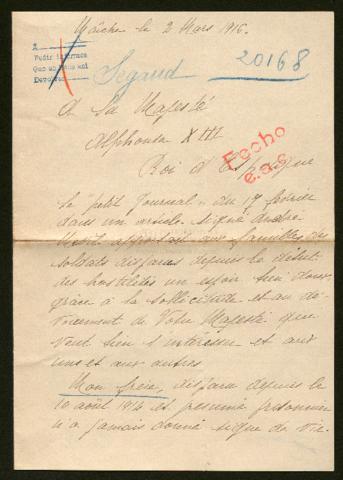 Maîche le 2 Mars 1916.
A
Pedir informes
Devolver
20168
Segaud
A Sa Majesté
Alphonse XIII
Fecho
Roi d'Espagne
e.a.c.
Le "Petit Journal" du 17 février
dans un article signé André
apportait aux familles des
soldats disparus depuis le début
des hostilités un espoir bien doux
grâce à la sollicitude et au dé-
vouement de Votre Majesté qui
veut bien s'intéresser et aux
uns et aux autres.
Mon frère, disparu depuis le
10 août 1914 et présumé prisonnier
n'a jamais donné signe de vie.